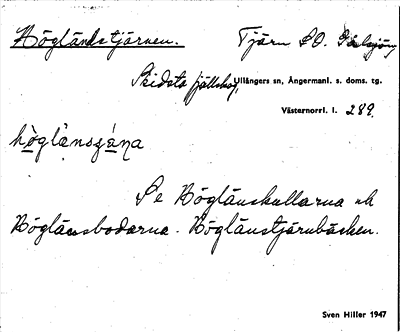 Högländstjärnen. Tjärn SO.
Skidsta fjällskog, Ullångers sn, Ångermanl. s. doms. tg.
Västernorrl. l. 289.
Se Höglänskullarna och
Höglänsbodarna. Höglänstjärnbäcken.
Sven Hiller 1947